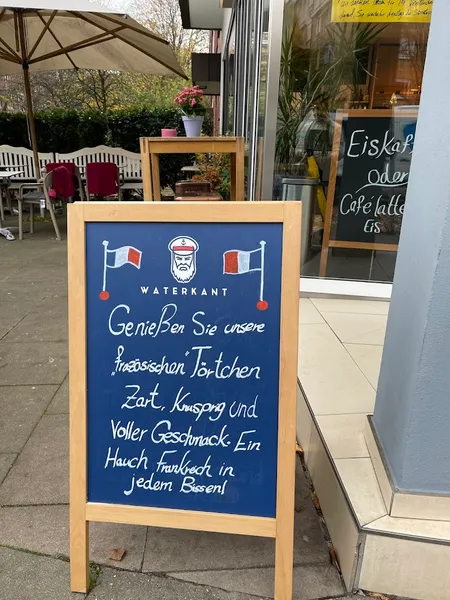 WATERKANT
Genießen Sie unsere
"französischen" Törtchen
Zart, Knusprig und
Voller Geschmack. Ein
Hauch Frankreich in
jedem Bissen!
Eiskaf
Oder
Café latte
Eis